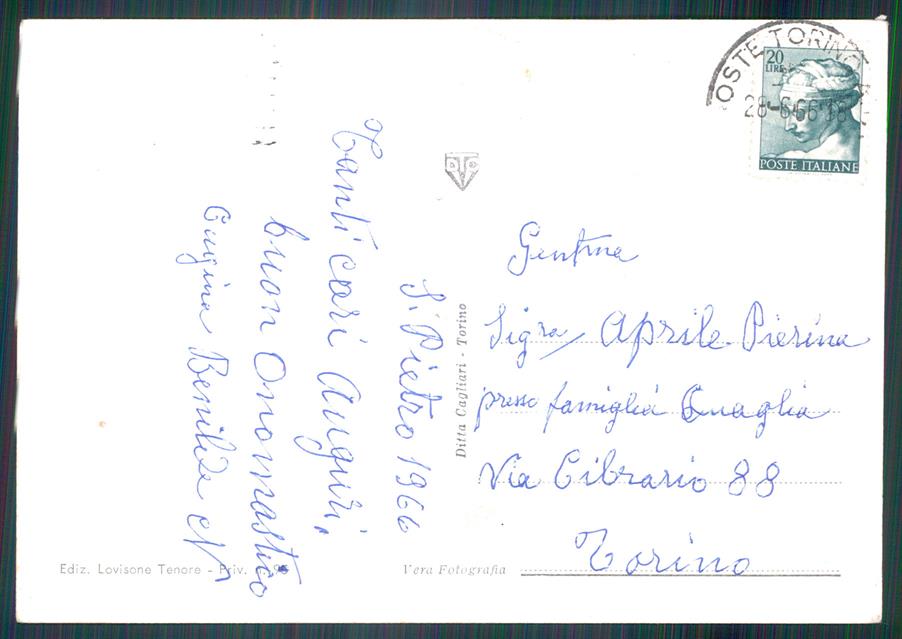 S. Pietro 1966
Tanti cari Auguri,
buon Onomastico
Cugina Benilde N
Gentma
Sigra Aprile Pierina
presso famiglia Quaglia
Via Cibrario 88
Torino
POSTE TORINO
28-6-66 18
20
LIRE
POSTE ITALIANE
Ditta Cagliari - Torino
Ediz. Lovisone Tenore - Priv. n. 96
Vera Fotografia